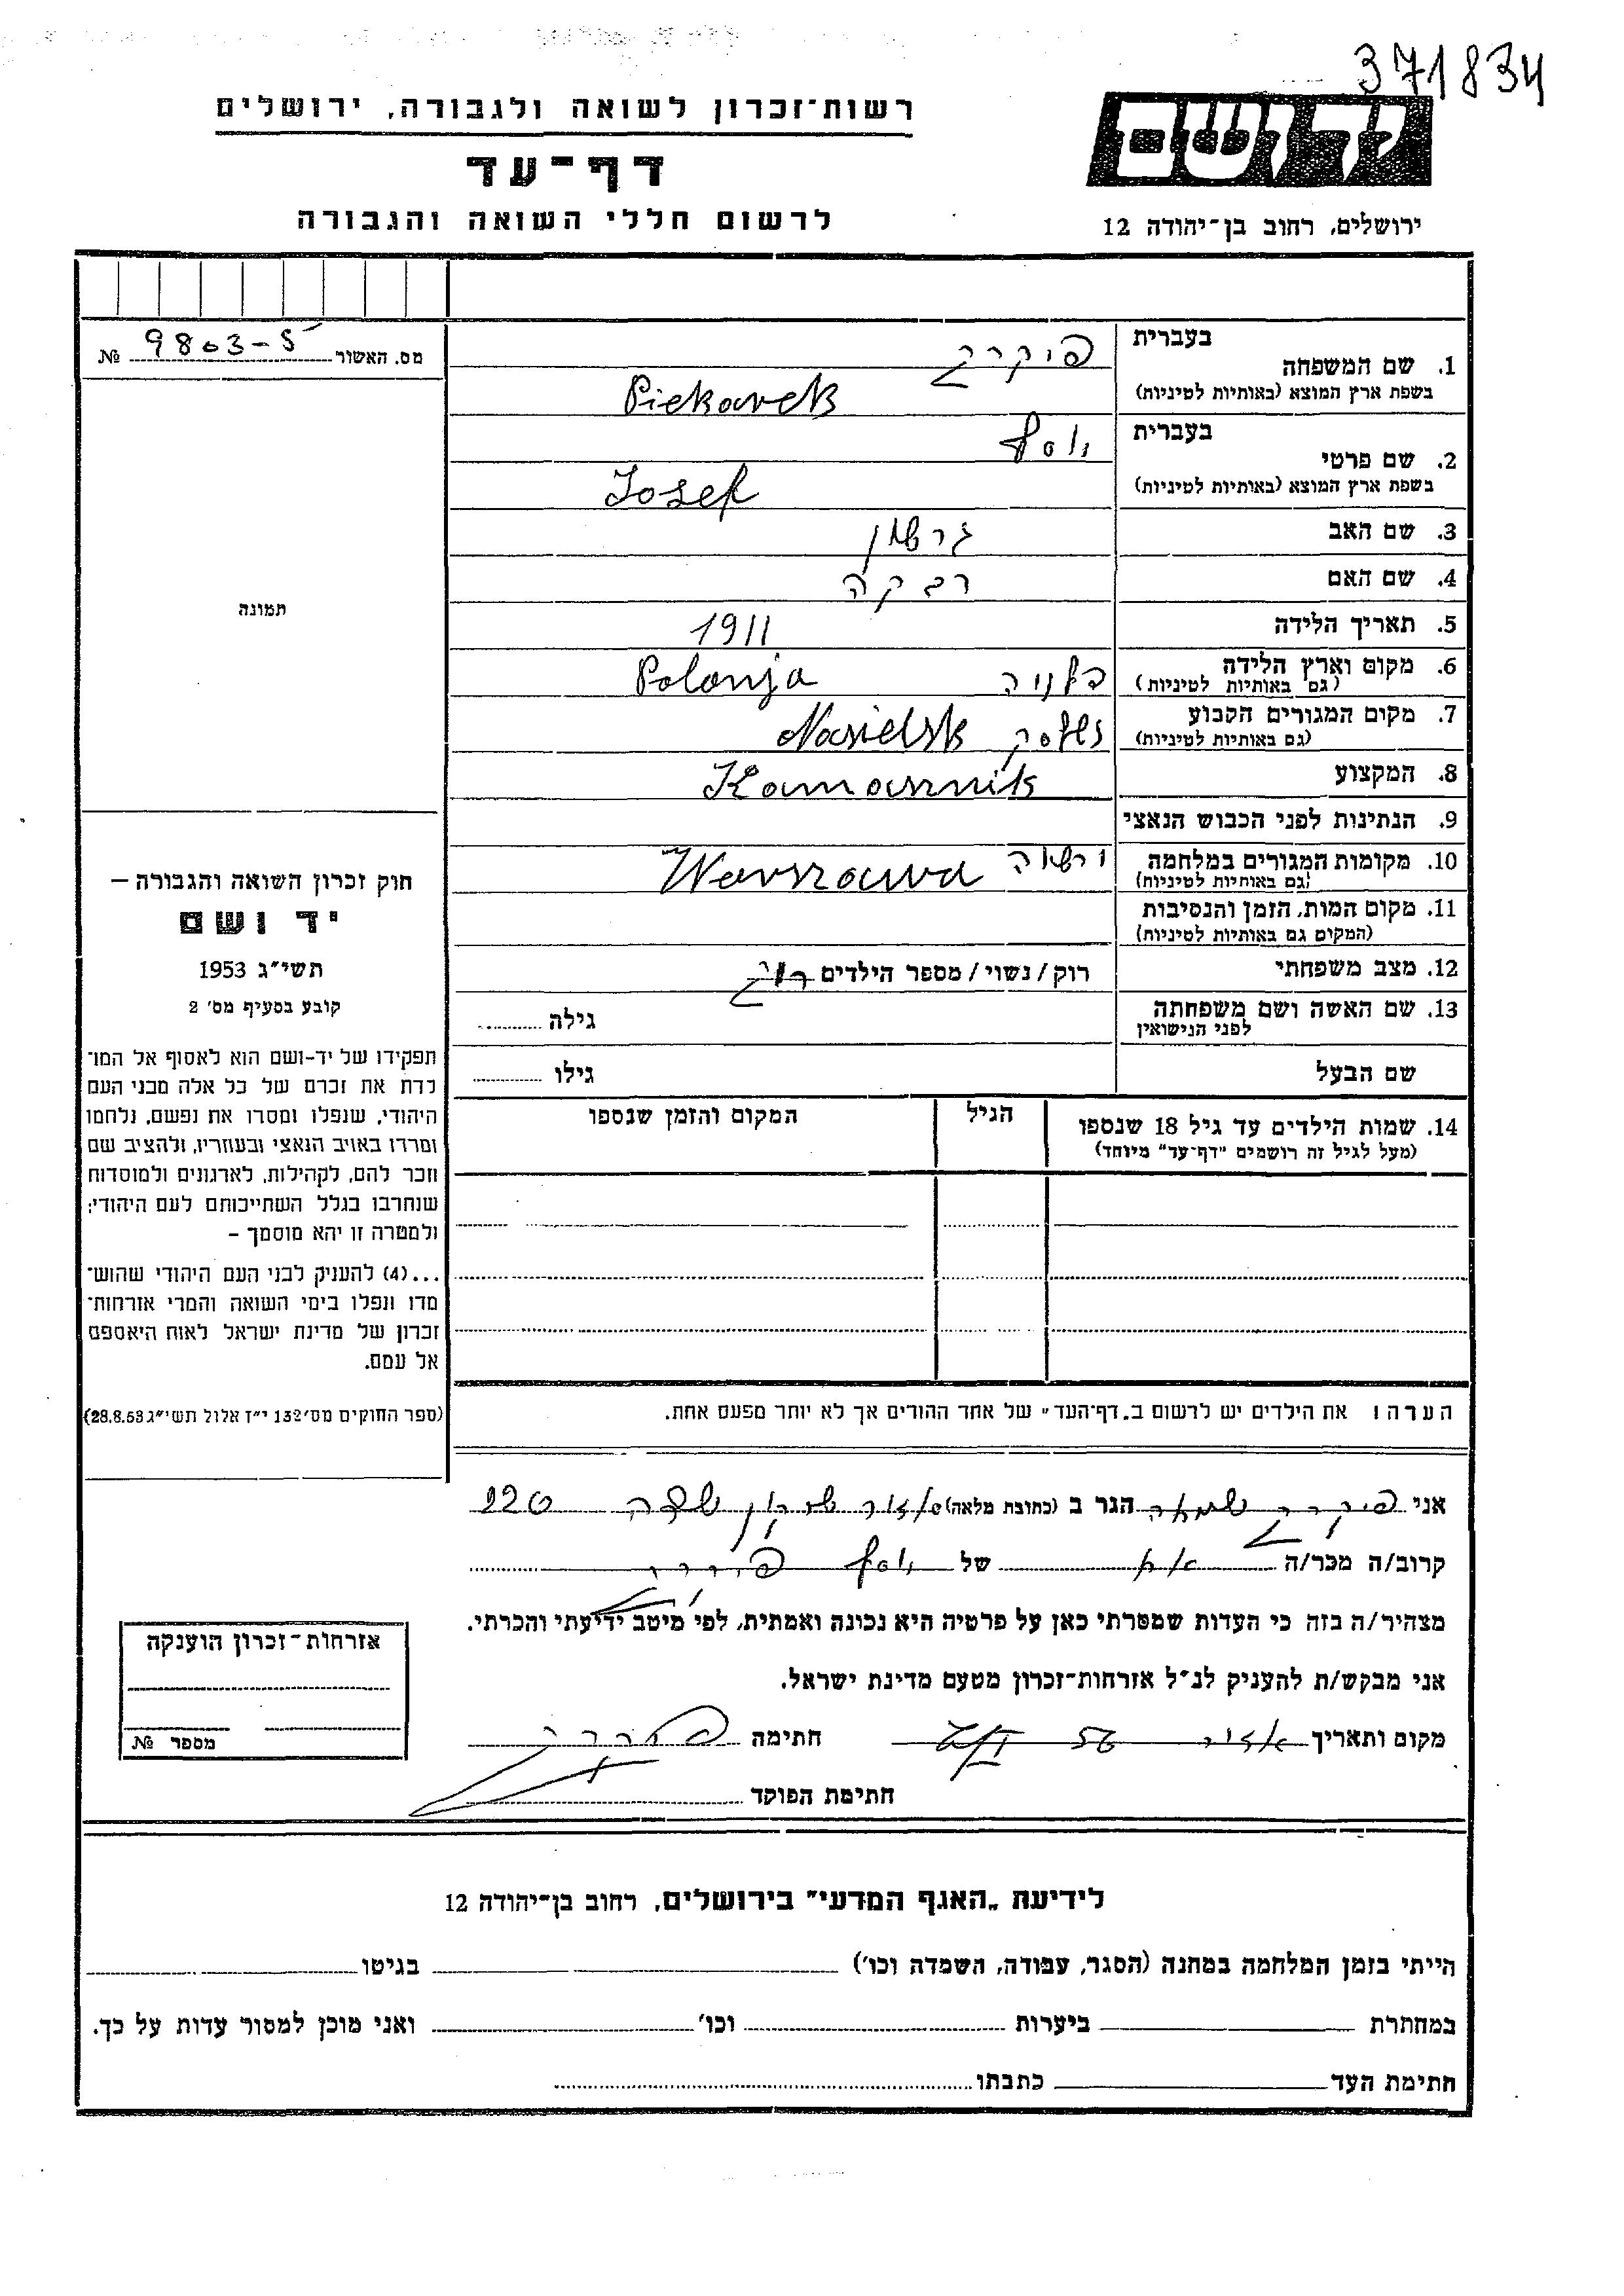 371834
רשות־זכרון לשואה ולגבורה, ירושלים
דף־עד
לרשום חללי השואה והגבורה
יד ושם
ירושלים, רחוב בן־יהודה 12
מס. האשור 9803-5 №
תמונה
חוק זכרון השואה והגבורה –
יד ושם
תשי״ג 1953
קובע בסעיף מס׳ 2
תפקידו של יד-ושם הוא לאסוף אל המו־
לדת את זכרם של כל אלה מבני העם
היהודי, שנפלו ומסרו את נפשם, נלחמו
ומרדו באויב הנאצי ובעוזריו, ולהציב שם
וזכר להם, לקהילות, לארגונים ולמוסדות
שנחרבו בגלל השתייכותם לעם היהודי;
ולמטרה זו יהא מוסמך –
...(4) להעניק לבני העם היהודי שהוש־
מדו ונפלו בימי השואה והמרי אזרחות־
זכרון של מדינת ישראל לאות היאספם
אל עמם.
(ספר החוקים מס׳ 132 י״ז אלול תשי״ג 28.8.53)
1. שם המשפחה בעברית פיקרק
בשפת ארץ המוצא (באותיות לטיניות) Piekarek
2. שם פרטי בעברית יוסף
בשפת ארץ המוצא (באותיות לטיניות) Josef
3. שם האב גרשון
4. שם האם רבקה
5. תאריך הלידה 1911
6. מקום וארץ הלידה (גם באותיות לטיניות) פולניה Polonja
7. מקום המגורים הקבוע (גם באותיות לטיניות) Nasielsk
8. המקצוע Kamasznik
9. הנתינות לפני הכבוש הנאצי
10. מקומות המגורים במלחמה (גם באותיות לטיניות) ורשוה Warszawa
11. מקום המות, הזמן והנסיבות
(המקום גם באותיות לטיניות)
12. מצב משפחתי רוק/נשוי/מספר הילדים רווק
13. שם האשה ושם משפחתה לפני הנישואין גילה
שם הבעל גילו
14. שמות הילדים עד גיל 18 שנספו הגיל המקום והזמן שנספו
(מעל לגיל זה רושמים ״דף־עד״ מיוחד)
הערה: את הילדים יש לרשום ב„דף־העד״ של אחד ההורים אך לא יותר מפעם אחת.
אני פיקרק הגר ב (כתובת מלאה) 220
קרוב/ה מכר/ה אח של יוסף פיקרק
מצהיר/ה בזה כי העדות שמסרתי כאן על פרטיה היא נכונה ואמתית, לפי מיטב ידיעתי והכרתי.
אני מבקש/ת להעניק לנ״ל אזרחות־זכרון מטעם מדינת ישראל.
מקום ותאריך חתימה פיקרק
חתימת הפוקד
אזרחות־זכרון הוענקה
מספר №
לידיעת „האגף המדעי״ בירושלים, רחוב בן־יהודה 12
הייתי בזמן המלחמה במחנה (הסגר, עבודה, השמדה וכו׳) בגיטו
במחתרת ביערות וכו׳ ואני מוכן למסור עדות על כך.
חתימת העד כתבתו